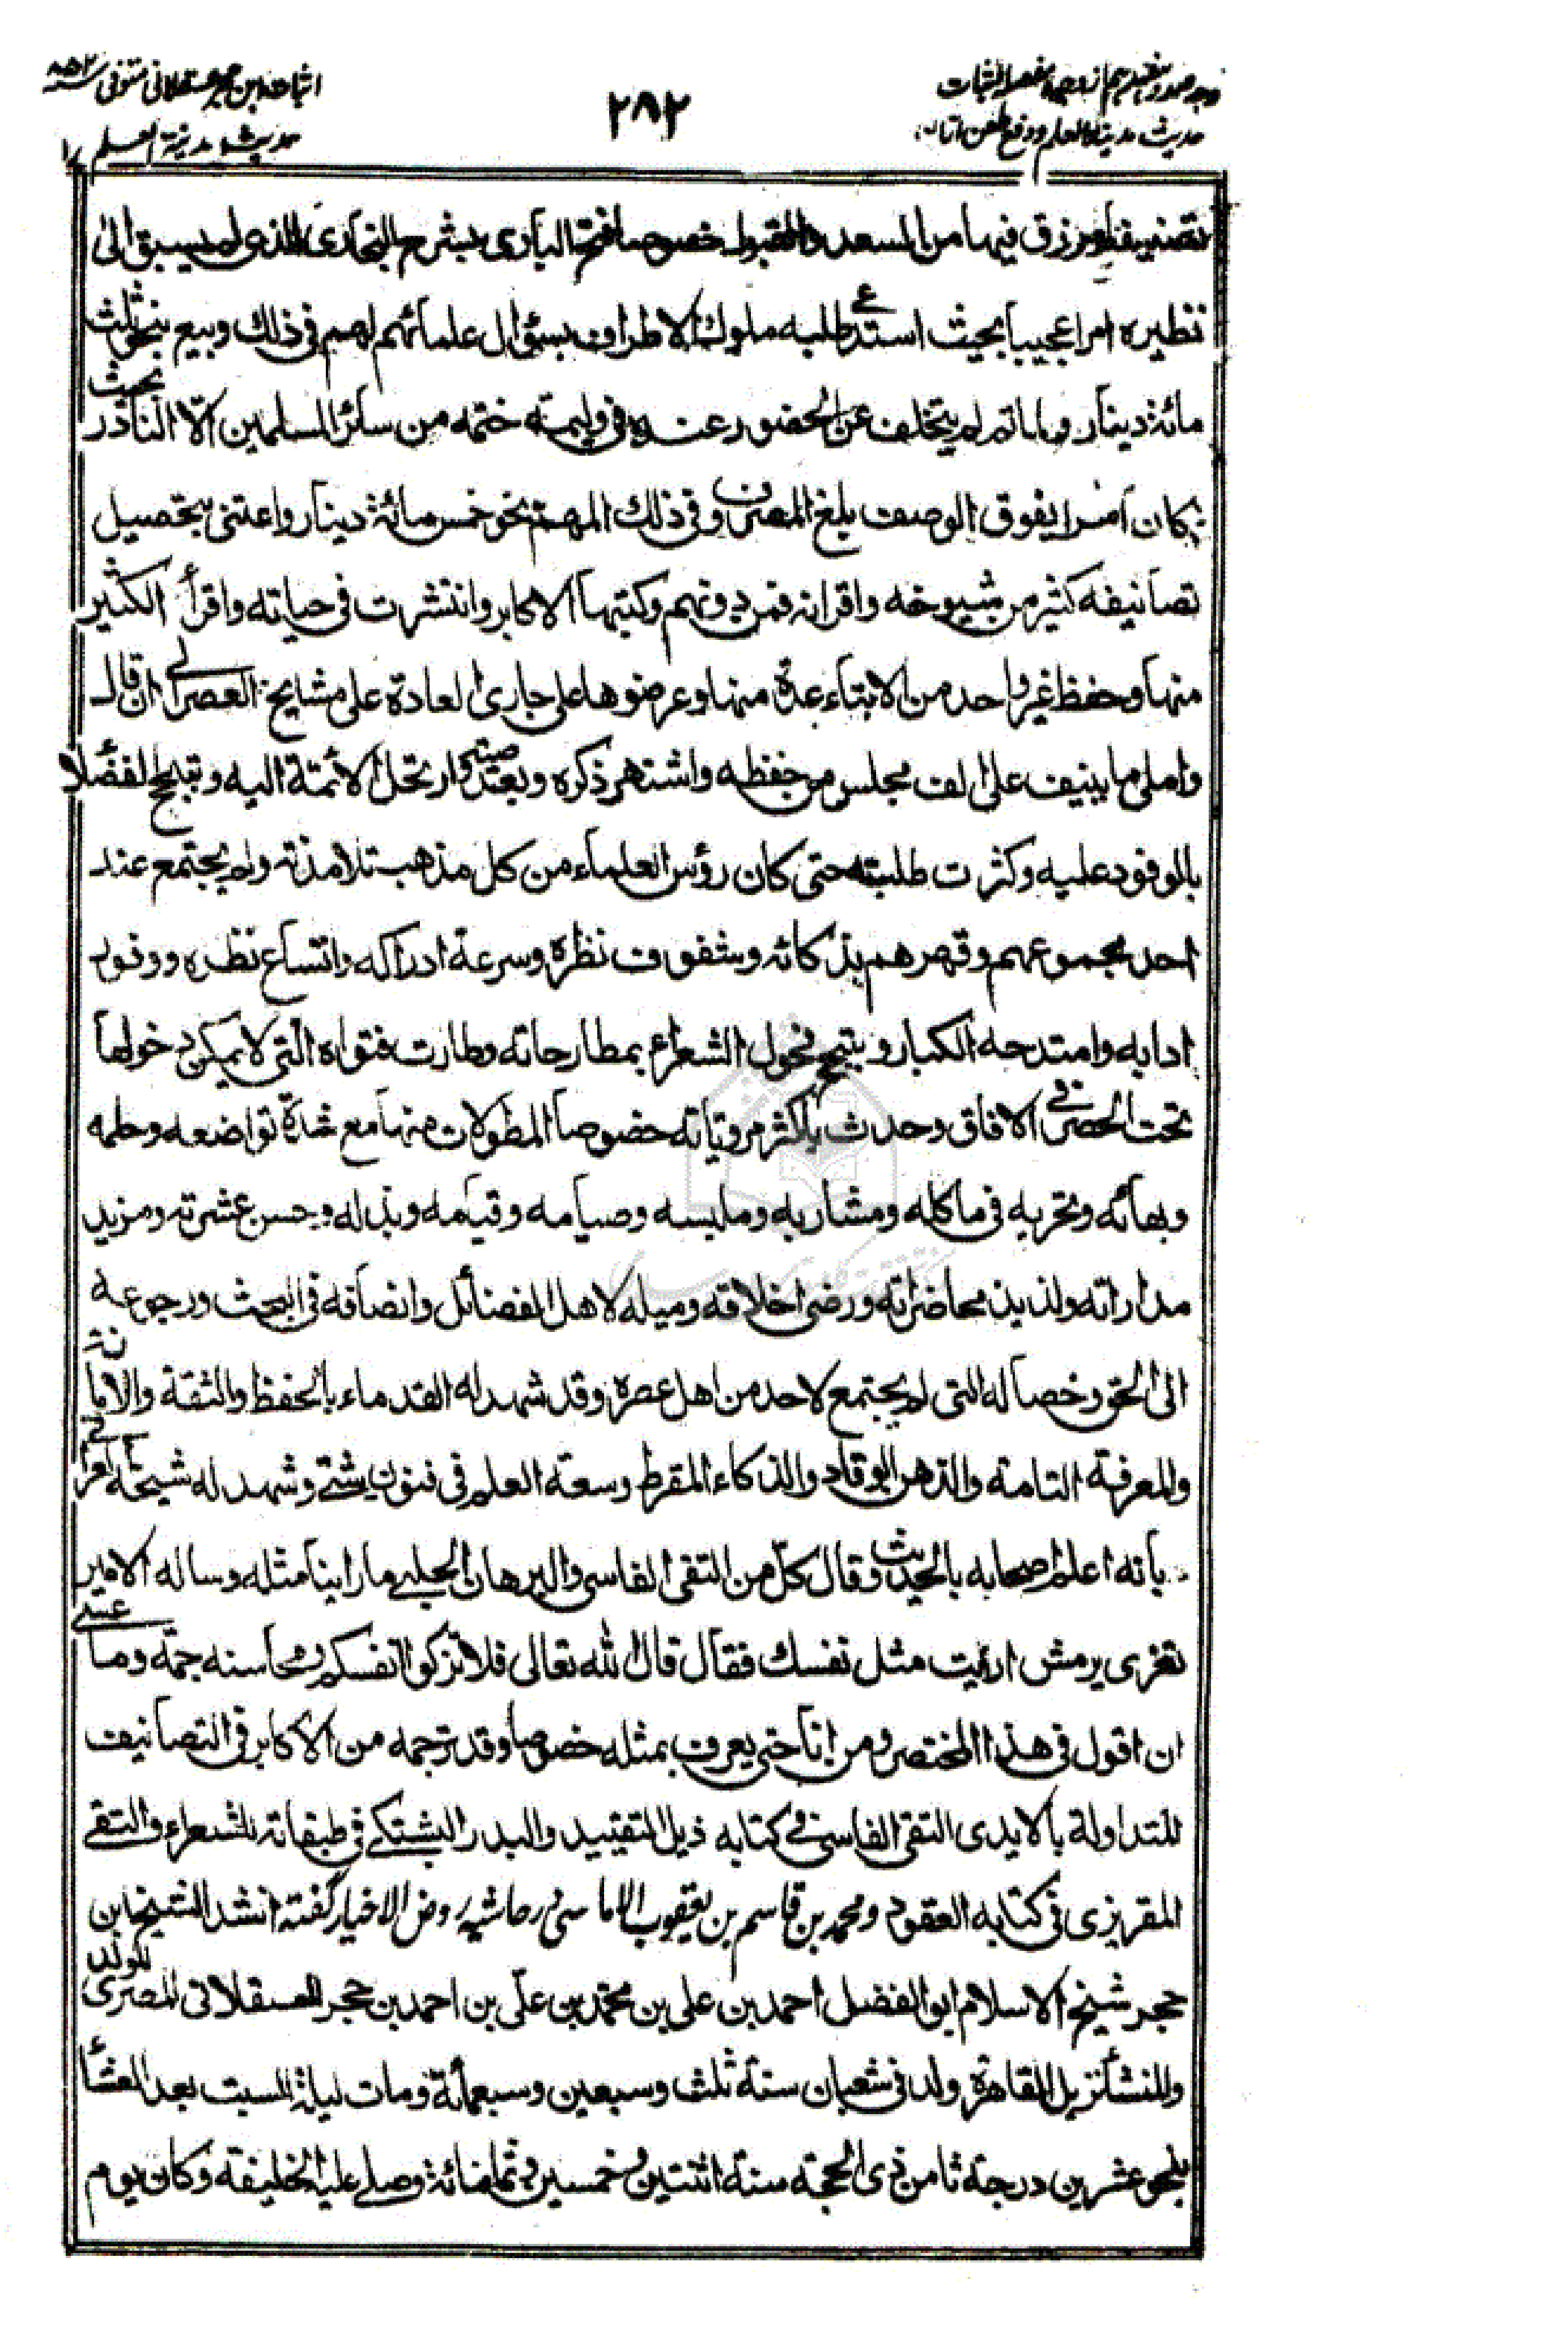 وجه صد و هفتدهم از وجوه
اثبات ابن حجر عسقلانی متوفی سنه ۸۵۲
۲۸۲
حدیث مدینة العلم و دفع طعن
حدیث مدینة العلم را
تصنیفه ورزق فیها من السعد والقبول خصوصا فتح الباری بشرح البخاری الذی لم یسبق الی
نظیره امرا عجیبا بحیث استدعی طلبه ملوک الاطراف بسؤال علمائهم لهم فی ذلک وبیع بنحو ثلث
مائة دینار ولما تم لم یتخلف عن الحضور عنده فی ولیمة ختمه من سائر المسلمین الا النادر بحیث
کان امرا یفوق الوصف بلغ المصروف فی ذلک المهم نحو خمس مائة دینار واعتنی بتحصیل
تصانیفه کثیر من شیوخه واقرانه فمن دونهم وکتبها الاکابر وانتشرت فی حیاته واقرأ الکثیر
منها وحفظ غیر واحد من الابناء عدة منها وعرضوها علی جاری العادة علی مشایخ العصر الی ان قال
واملی ما ینیف علی الف مجلس من حفظه واشتهر ذکره وبعد صیته وارتحل الائمة الیه وتبجح الفضلا
بالوفود علیه وکثرت طلبته حتی کان رؤس العلماء من کل مذهب تلامذته ولم یجتمع عند
احد مجموعهم وقهرهم بذکائه وشفوف نظره وسرعة ادراکه واتساع نظره ووفور
ادابه وامتدحه الکبار وتبجح فحول الشعراء بمطارحاته وطارت فتواه التی لا یمکن دخولها
تحت الحصر فی الافاق وحدث باکثر مرویاته خصوصا المطولات منها مع شدة تواضعه وحلمه
وبهائه وتحریه فی ماکله ومشاربه وملبسه وصیامه وقیامه وبذله وحسن عشرته ومزید
مداراته ولذیذ محاضراته ورضی اخلاقه ومیله لاهل الفضائل وانصافه فی البحث ورجوعه
الی الحق وخصاله التی لم یجتمع لاحد من اهل عصره وقد شهد له القدماء بالحفظ والثقة والامانة
والمعرفة التامة والذهن الوقاد والذکاء المفرط وسعة العلم فی فنون شتی وشهد له شیخه العراقی
بانه اعلم اصحابه بالحدیث وقال کل من التقی الفاسی والبرهان الحلبی ما راینا مثله وساله الامیر
تغری برمش ارئیت مثل نفسک فقال قال الله تعالی فلا تزکوا انفسکم ومحاسنه جمة وما عسی
ان اقول فی هذا المختصر ومن انا حتی یعرف بمثله خصوصا وقد ترجمه من الاکابر فی التصانیف
المتداولة بالایدی التقی الفاسی فی کتابه ذیل التقیید والبدر البشتکی فی طبقاته للشعراء والتقی
المقریزی فی کتابه العقود ومحمد بن قاسم بن یعقوب الاماسی در حاشیه روض الاخیار گفته انشد الشیخ ابن
حجر شیخ الاسلام ابو الفضل احمد بن علی بن محمد بن علی بن احمد بن حجر العسقلانی المصری المولد
والمنشأ نزیل القاهرة ولد فی شعبان سنة ثلث وسبعین وسبعمائة ومات لیلة السبت بعد العشا
بنحو عشرین درجة ثامن ذی الحجة سنة اثنتین وخمسین وثمانمائة وصلی علیه الخلیفة وکان یوم